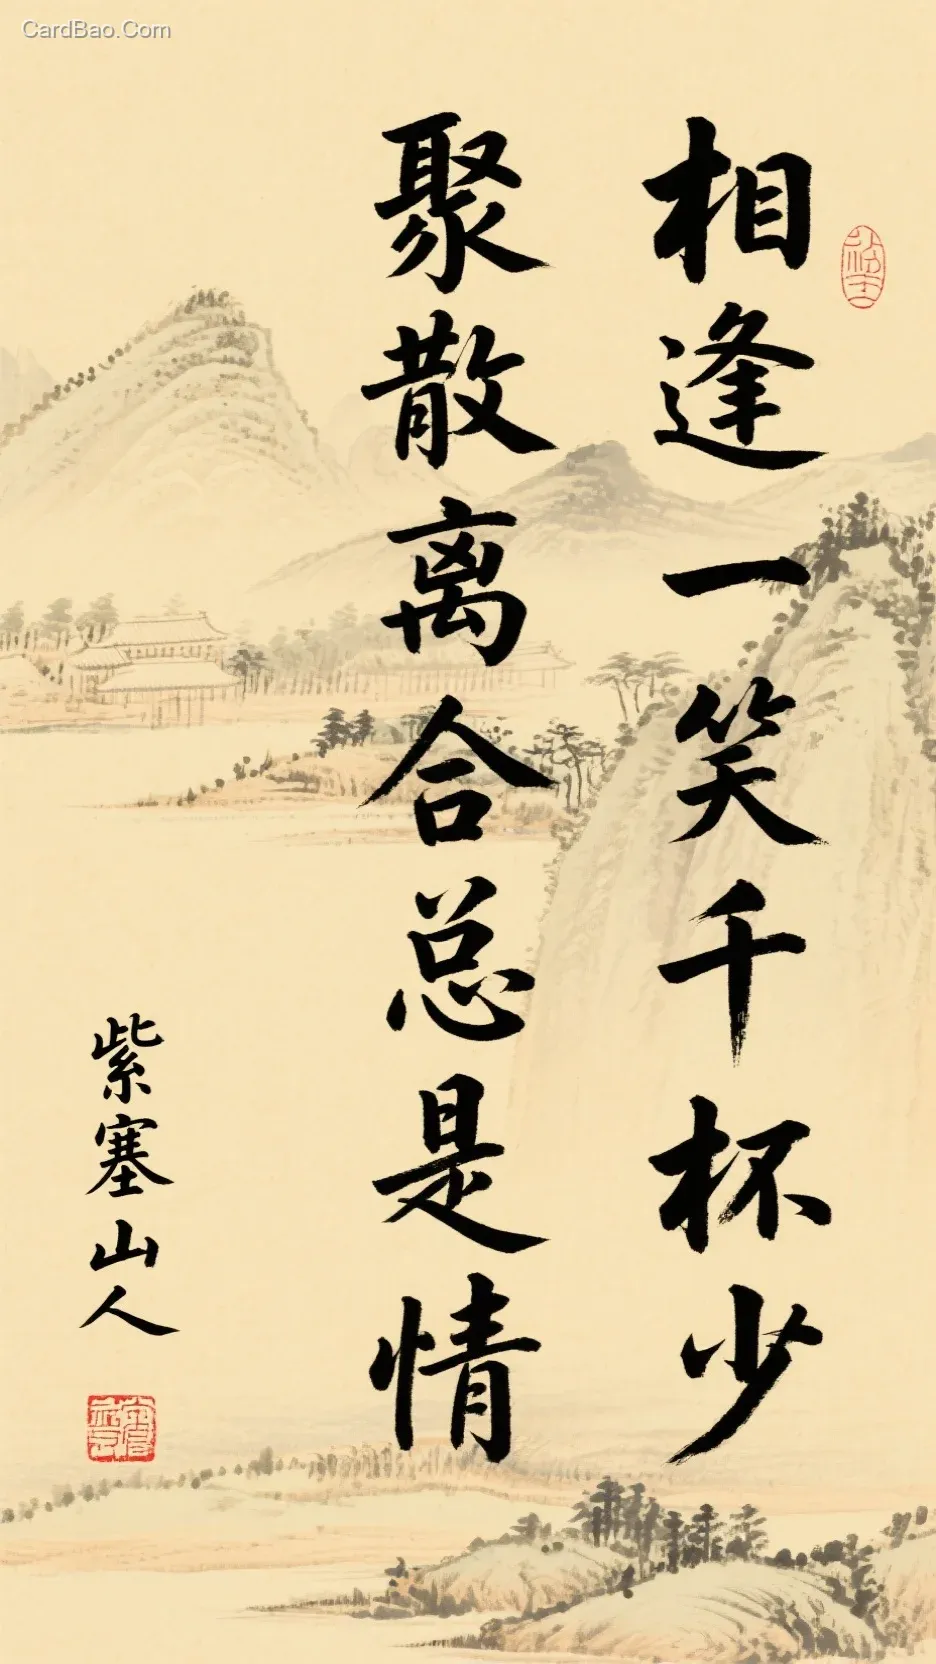 CardBao.Com
相逢一笑千杯少
聚散离合总是情
紫塞山人